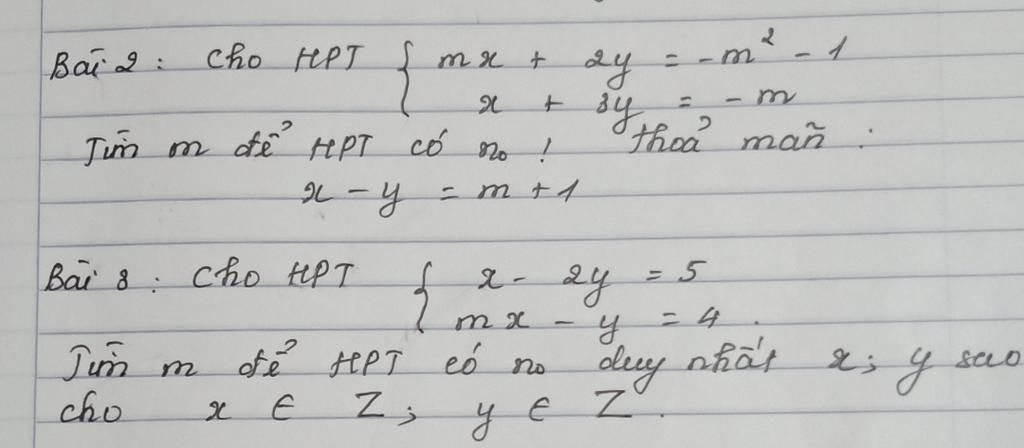 Bài 2 : Cho HPT { mx + 2y = -m² - 1
x + 3y = -m
Tìm m để HPT có no ! thoả mãn :
x - y = m + 1
Bài 3 : Cho HPT { x - 2y = 5
mx - y = 4 .
Tìm m để HPT có no duy nhất x; y sao
cho x ∈ Z; y ∈ Z .